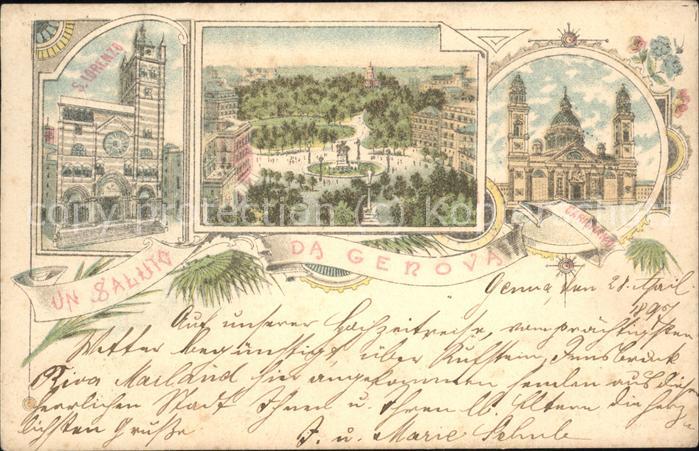 S. LORENZO
CARIGNANO
UN SALUTO DA GENOVA
Genua, den 21. April
Auf unserer Hochzeitreise, vom prächtigsten
Wetter begünstigt, über Kufstein, Innsbruck
Riva Mailand hier angekommen senden aus die
herrlichen Stadt Ihnen u. Ihren lb. Eltern die herz-
lichsten Grüße
J. u. Marie Schule
copy protection (c)